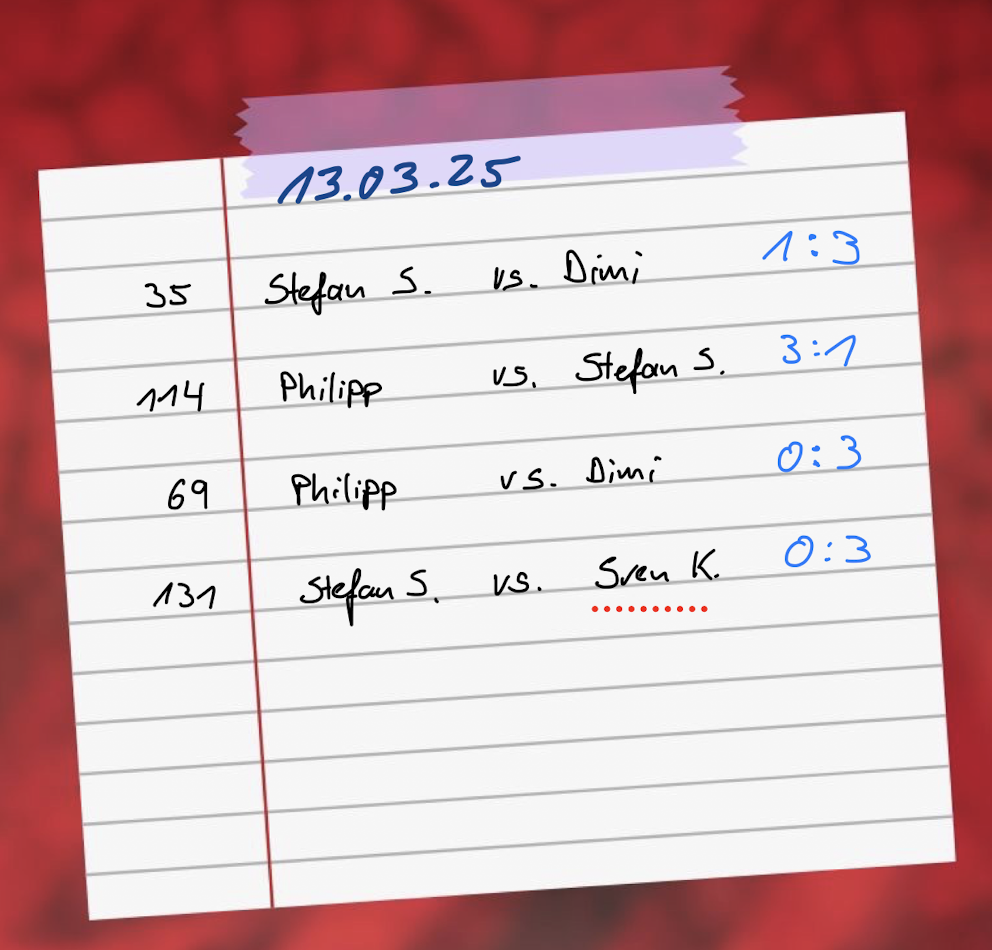 13.03.25
35 Stefan S. vs. Dimi 1:3
114 Philipp vs. Stefan S. 3:1
69 Philipp vs. Dimi 0:3
131 Stefan S. vs. Sven K. 0:3